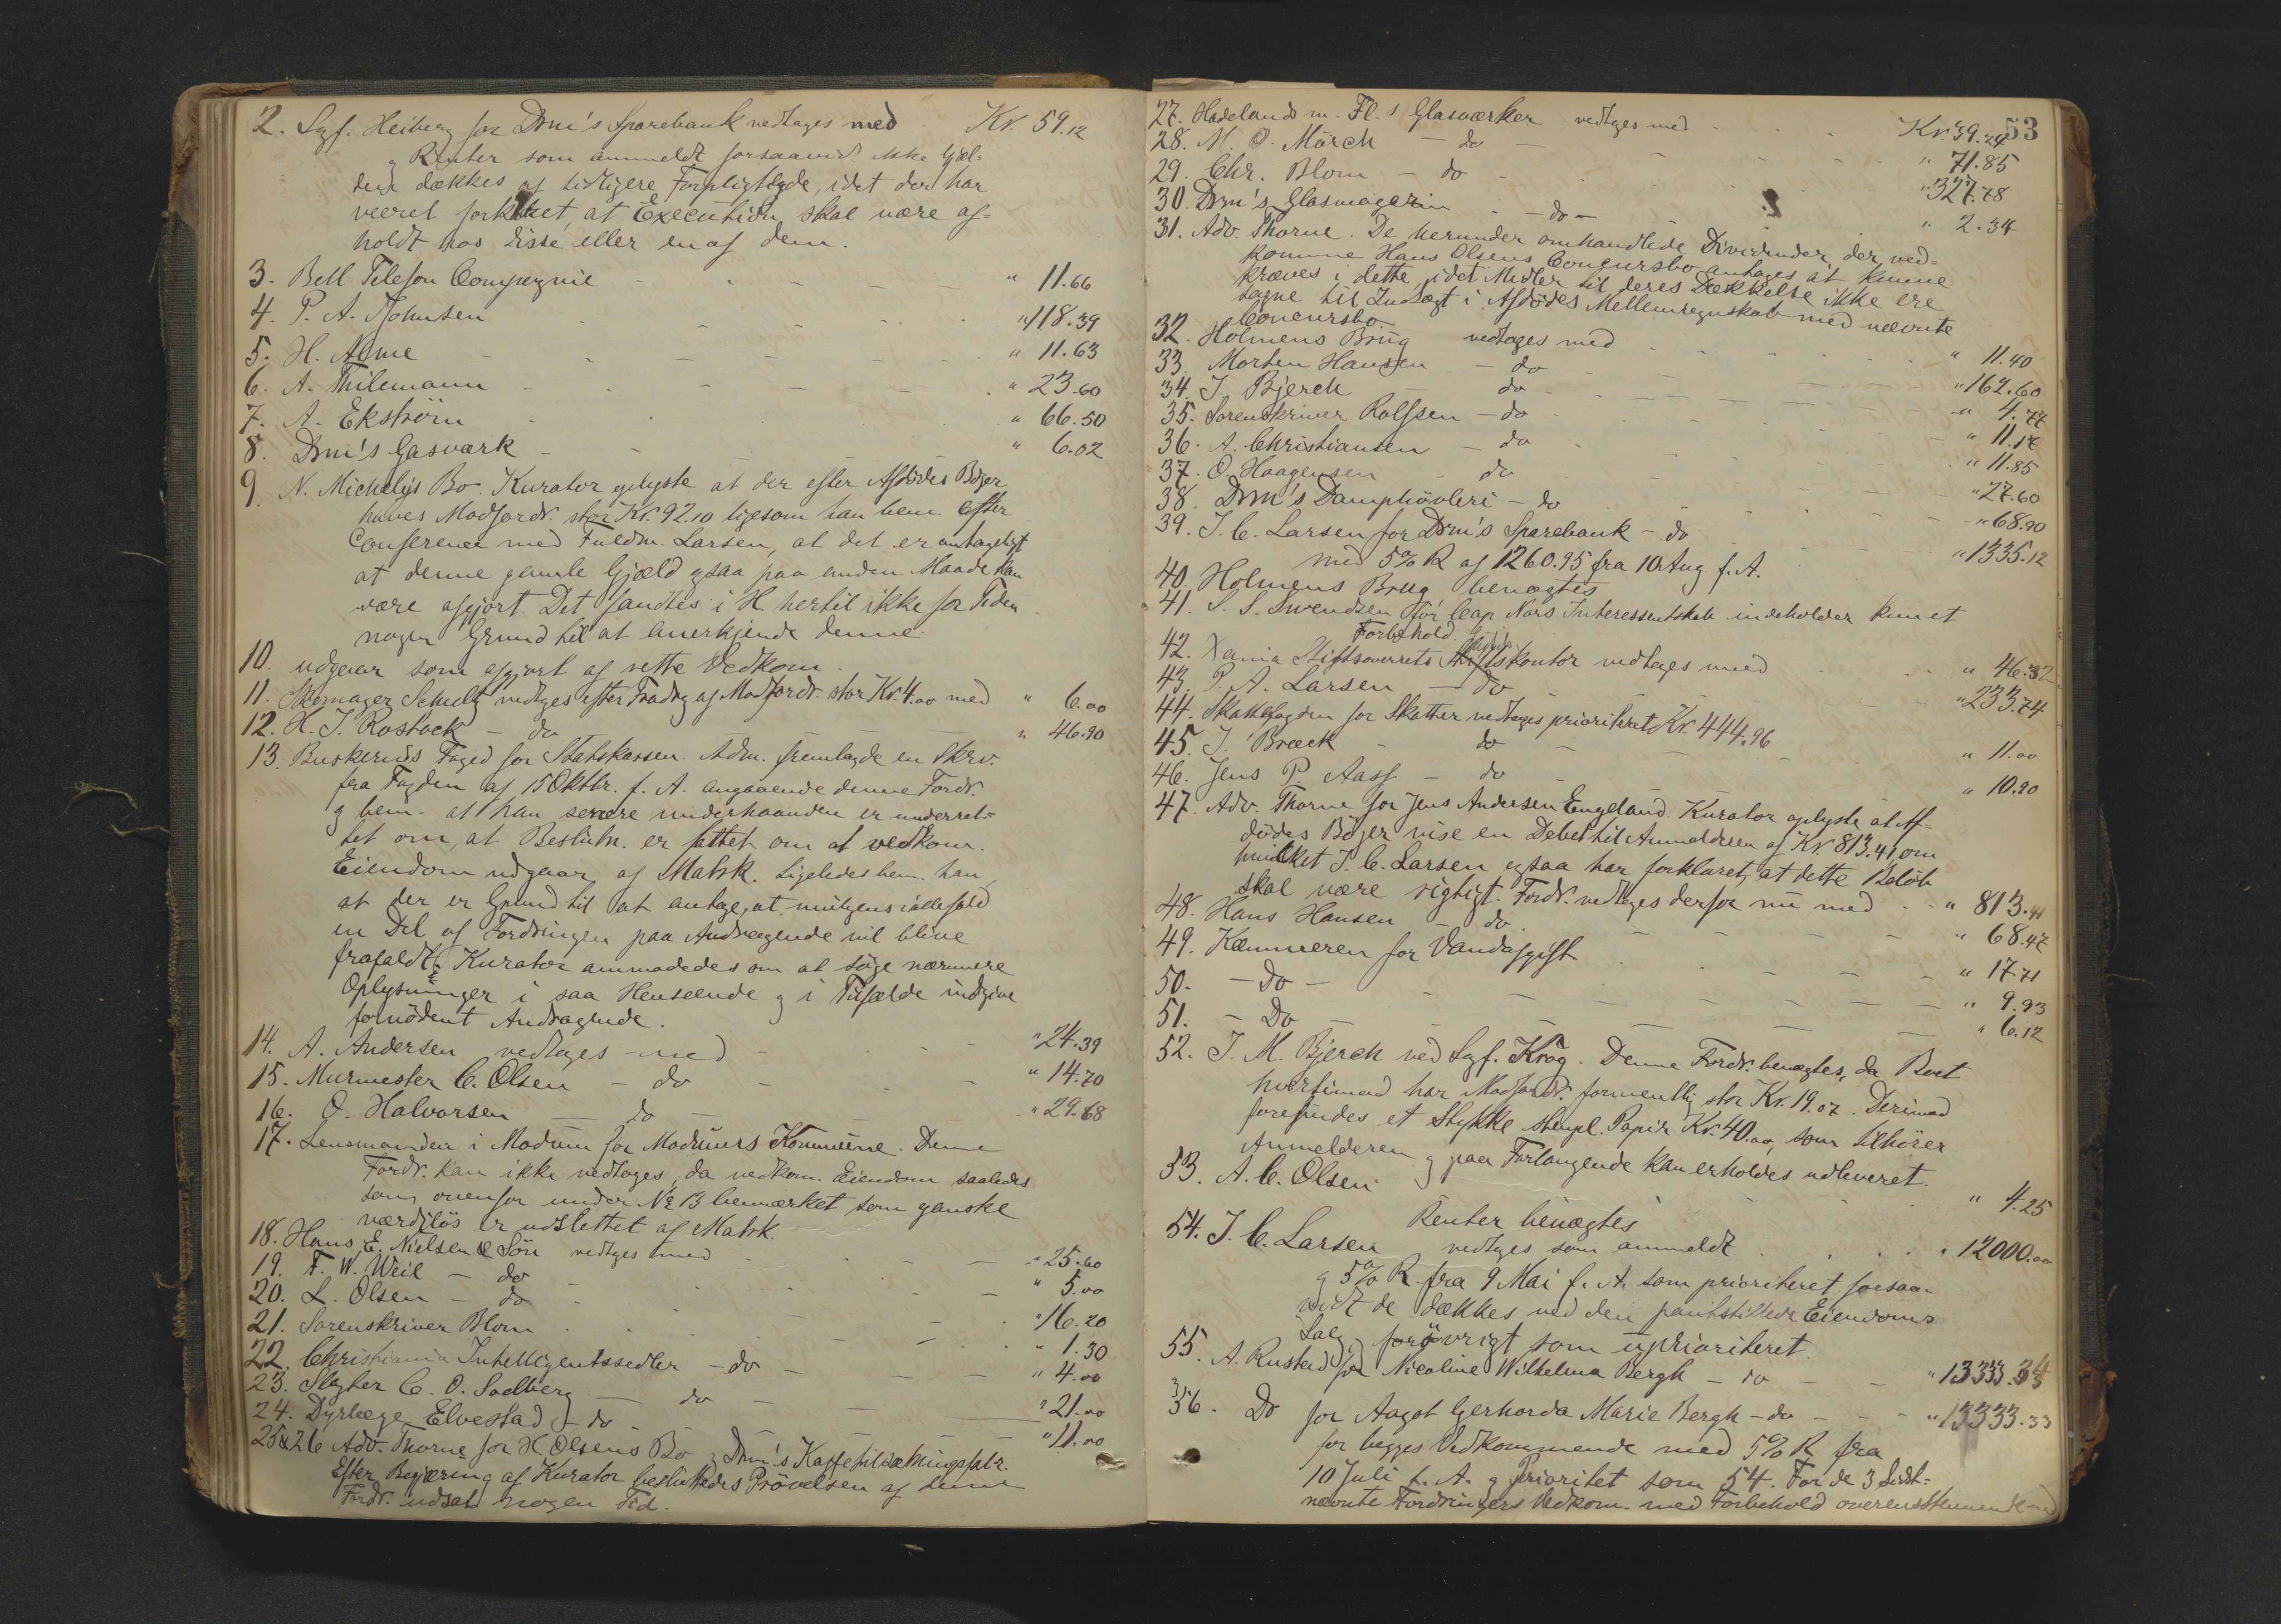 2. Sgf. Heiberg for Drm's Sparebank vedtages med Kr. 59.12
g Renter som anmeldt forsaavidt ikke Gjæl-
den dækkes af tidligere Forpligtede, idet der har
været forklaret, at Execution skal være af-
holdt hos disse eller en af dem.
3. Bell Telefon Compagnie - - - - " 11.66
4. P. A. Johnsen - - - - "118.39
5. H. Asme - - - - " 11.63
6. A. Thilemann - - - - " 23.60
7. A. Ekström - - " 66.50
8. Drm's Gasværk - - - - " 6.02
9. N. Michelys Bo. Kurator oplyste at der efter Afdödes Böger
haves Modfordr. stor Kr. 92.10 ligesom han bem. efter
Conference med Fuldm. Larsen, at det er antageligt
at denne gamle Gjæld ogsaa paa anden Maade kan
være afgjort. Det fandtes i H. hertil ikke for Tiden
nogen Grund til at anerkjende denne.
10. udgaar som afgjort af rette Vedkom.
11. Skomager Schultz vedtages efter Fradrag af Modfordr. stor Kr. 4.00 med " 6.00
12. H. J. Rostock - do " 46.90
13. Buskeruds Foged for Statskassen. Adm. fremlagde en Skrv.
fra Fogden af 15 Oktbr. f. A. angaaende denne Fordr.
g bem. at han senere underhaanden er underret-
tet om, at Beslutn. er fattet om at vedkom.
Eiendom udgaar af Matrk. Ligeledes bem. han,
at der er Grund til at antage, at muligens iallefald
en Del af Fordringen paa Andragende vil blive
frafaldt. Kurator anmodedes om at söge nærmere
Oplysninger i saa Henseende g i Tilfælde indgive
fornödent Andragende.
14. A. Andersen vedtages med - - - "24.39
15. Murmester C. Olsen - do - - - " 14.70
16. O. Halvorsen - do - "29.68
17. Lensmanden i Modum for Modums Kommune. Denne
Fordr. kan ikke vedtages, da vedkom. Eiendom saaledes
som ovenfor under No 13 bemærket som ganske
værdilös er udslettet af Matrk.
18. Hans E. Nielsen & Sön vedtages med - - - "25.60
19. F. W. Weil - do - - " 5.00
20. L. Olsen - do - - "16.20
21. Sorenskriver Blom - - - " 1.30
22. Christiania Intelligentssedler - do - - - " 4.00
23. Slagter C. O. Sodberg - do - - "21.00
24. Dyrlæge Elvestad - do - "11.00
25&26 Adv. Thorne for H. Olsens Bo g Drm's Kaffetilsætningsfabr.
Efter Begjæring af Kurator besluttedes Prövelsen af denne
Fordr. udsat nogen Tid.
53
27. Hadelands m. Fl.s Glasværker vedtages med - - - Kr 39.24
28. M. O. Mörch - do - - - - " 71.85
29. Chr. Blom - do - "327.78
30. Drm's Glasmagazin - do - " 2.34
31. Adv. Thorne. De herunder omhandlede Dividender, der ved-
komme Hans Olsens Concursbo antages at kunne
kræves i dette, idet Midler til deres Dækkelse ikke ere
tagne til Indtægt i Afdödes Mellemregnskab med nævnte
Concursbo.
32. Holmens Brug vedtages med - - - " 11.40
33. Morten Hansen - do - - - "162.60
34. J. Bjerch - do - - - " 4.77
35. Sorenskriver Rolfsen - do - - " 11.12
36. A. Christiansen - do - - " 11.85
37. O. Haagensen do - - "27.60
38. Drm's Damphövleri - do - - "68.90
39. J. C. Larsen for Drm's Sparebank - do - - "1335.12
med 5% R af 1260.95 fra 10 Aug. f. A.
40. Holmens Brug benægtes
41. S. S. Svendsen for Cap Nors Interessentskab indeholder kun et
Forbehold.
42. Xania Stiftsoverrets Skifteskontor vedtages med - - " 46.32
43. P. A. Larsen - do - "233.74
44. Skattefogden for Skatter vedtages prioriteret Kr. 444.96
45. J. Bræck - do - - " 11.00
46. Jens P. Aass - do - " 10.20
47. Adv. Thorne for Jens Andersen Engeland. Kurator oplyste at Af-
dödes Böger vise en Debet til Anmelderen af Kr 813.41, om
hvilket J. C. Larsen ogsaa har forklaret, at dette Belöb
skal være rigtigt. Fordr. vedtages derfor nu med - - " 813.41
48. Hans Hansen - do - - - " 68.47
49. Kæmneren for Vandafgift - - - " 17.71
50. - Do - - - - " 9.93
51. - Do - - - - " 6.12
52. J. M. Bjerch ved Sgf. Krog. Denne Fordr. benægtes, da Boet
hvortimod har Modfordr. formentlig stor Kr. 19.07. Derimod
forefindes et Stykke stempl. Papir Kr. 40.00, som tilhörer
Anmelderen g paa Forlangende kan erholdes udleveret.
53. A. C. Olsen " 4.25
Renter benægtes
54. J. C. Larsen vedtages som anmeldt - - - " 12000.00
g 5% R. fra 9 Mai f. A. som prioriteret forsaa-
vidt de dækkes ved den pantstillede Eiendoms
Salg, forövrigt som uprioriteret.
55. A. Rustad for Nicoline Wilhelma Bergh - do - - "13333.34
56. Do for Aagot Gerharda Marie Bergh - do - - - "13333.33
for begges Vedkommende med 5% R fra
10 Juli f. A. g Prioritet som 54. For de 3 sidst-
nævnte Fordringers Vedkom. med Forbehold overensstemmende med